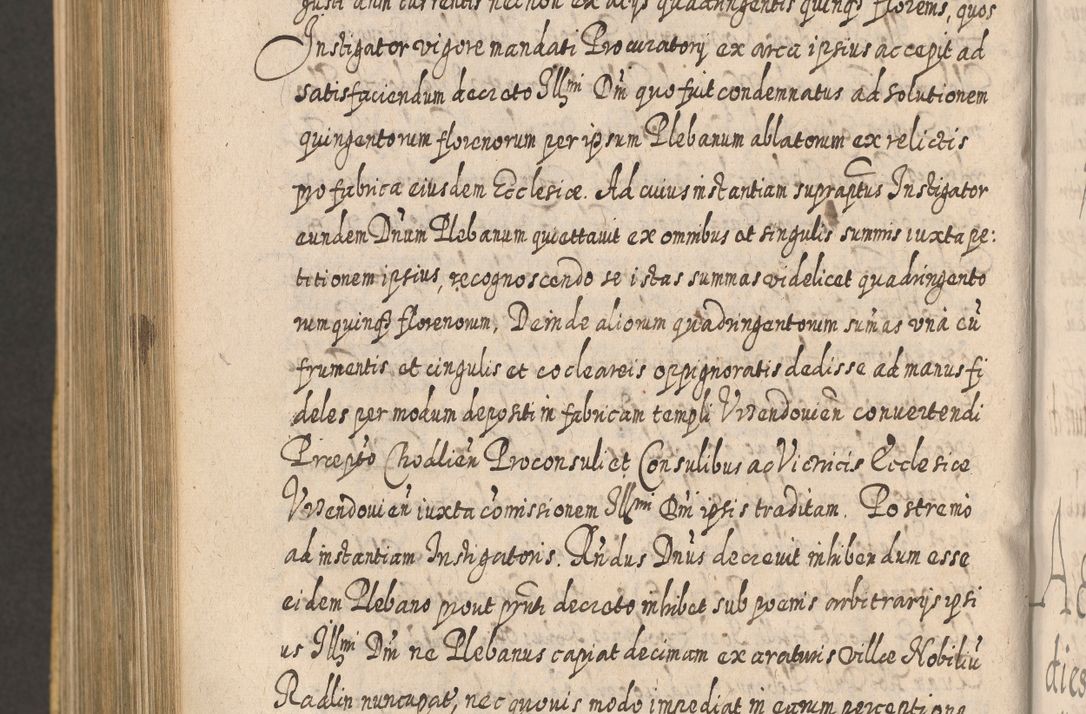 gusti anni currentis nec non ex alijs quadringentis quinq3 florenis, quos
Instigator vigore mandati Procuratorij ex arca ipsius accepit ad
satisfaciendum decreto Illmi Dni quo fuit condemnatus ad solutionem
quingentorum florenorum per ipsum Plebanum ablatorum ex relictis
pro fabrica eiusdem Ecclesiæ. Ad cuius instantiam supraptus Instigator
eundem Dnum Plebanum quiettauit ex omnibus et singulis summis iuxta pe:
titionem ipsius, recognoscendo se istas summas videlicet quadringento
rum quinq3 florenorum, Deinde aliorum quadringentorum sumas vna cu
frumentis et cingulis et cocleareis oppignoratis dedisse ad manus fi
deles per modum depositi in fabricam templi Wendouien conuertendi
Præpto Chodlien Proconsuli et Consulibus ac Vitricis Ecclesiæ
Wendouien iuxta comissionem Illmi Dni ipsis traditam. Postremo
ad instantiam Instigatoris. Rndus Dnus decreuit inhibendum esse
eidem Plebano prout pnti decreto inhibet sub poenis arbitrarijs ipsi
us Illmi Dni ne Plebanus capiat decimam ex araturis villæ Nobiliu
Radlin nuncupat, nec quouis modo impediat in earum perceptione
dies